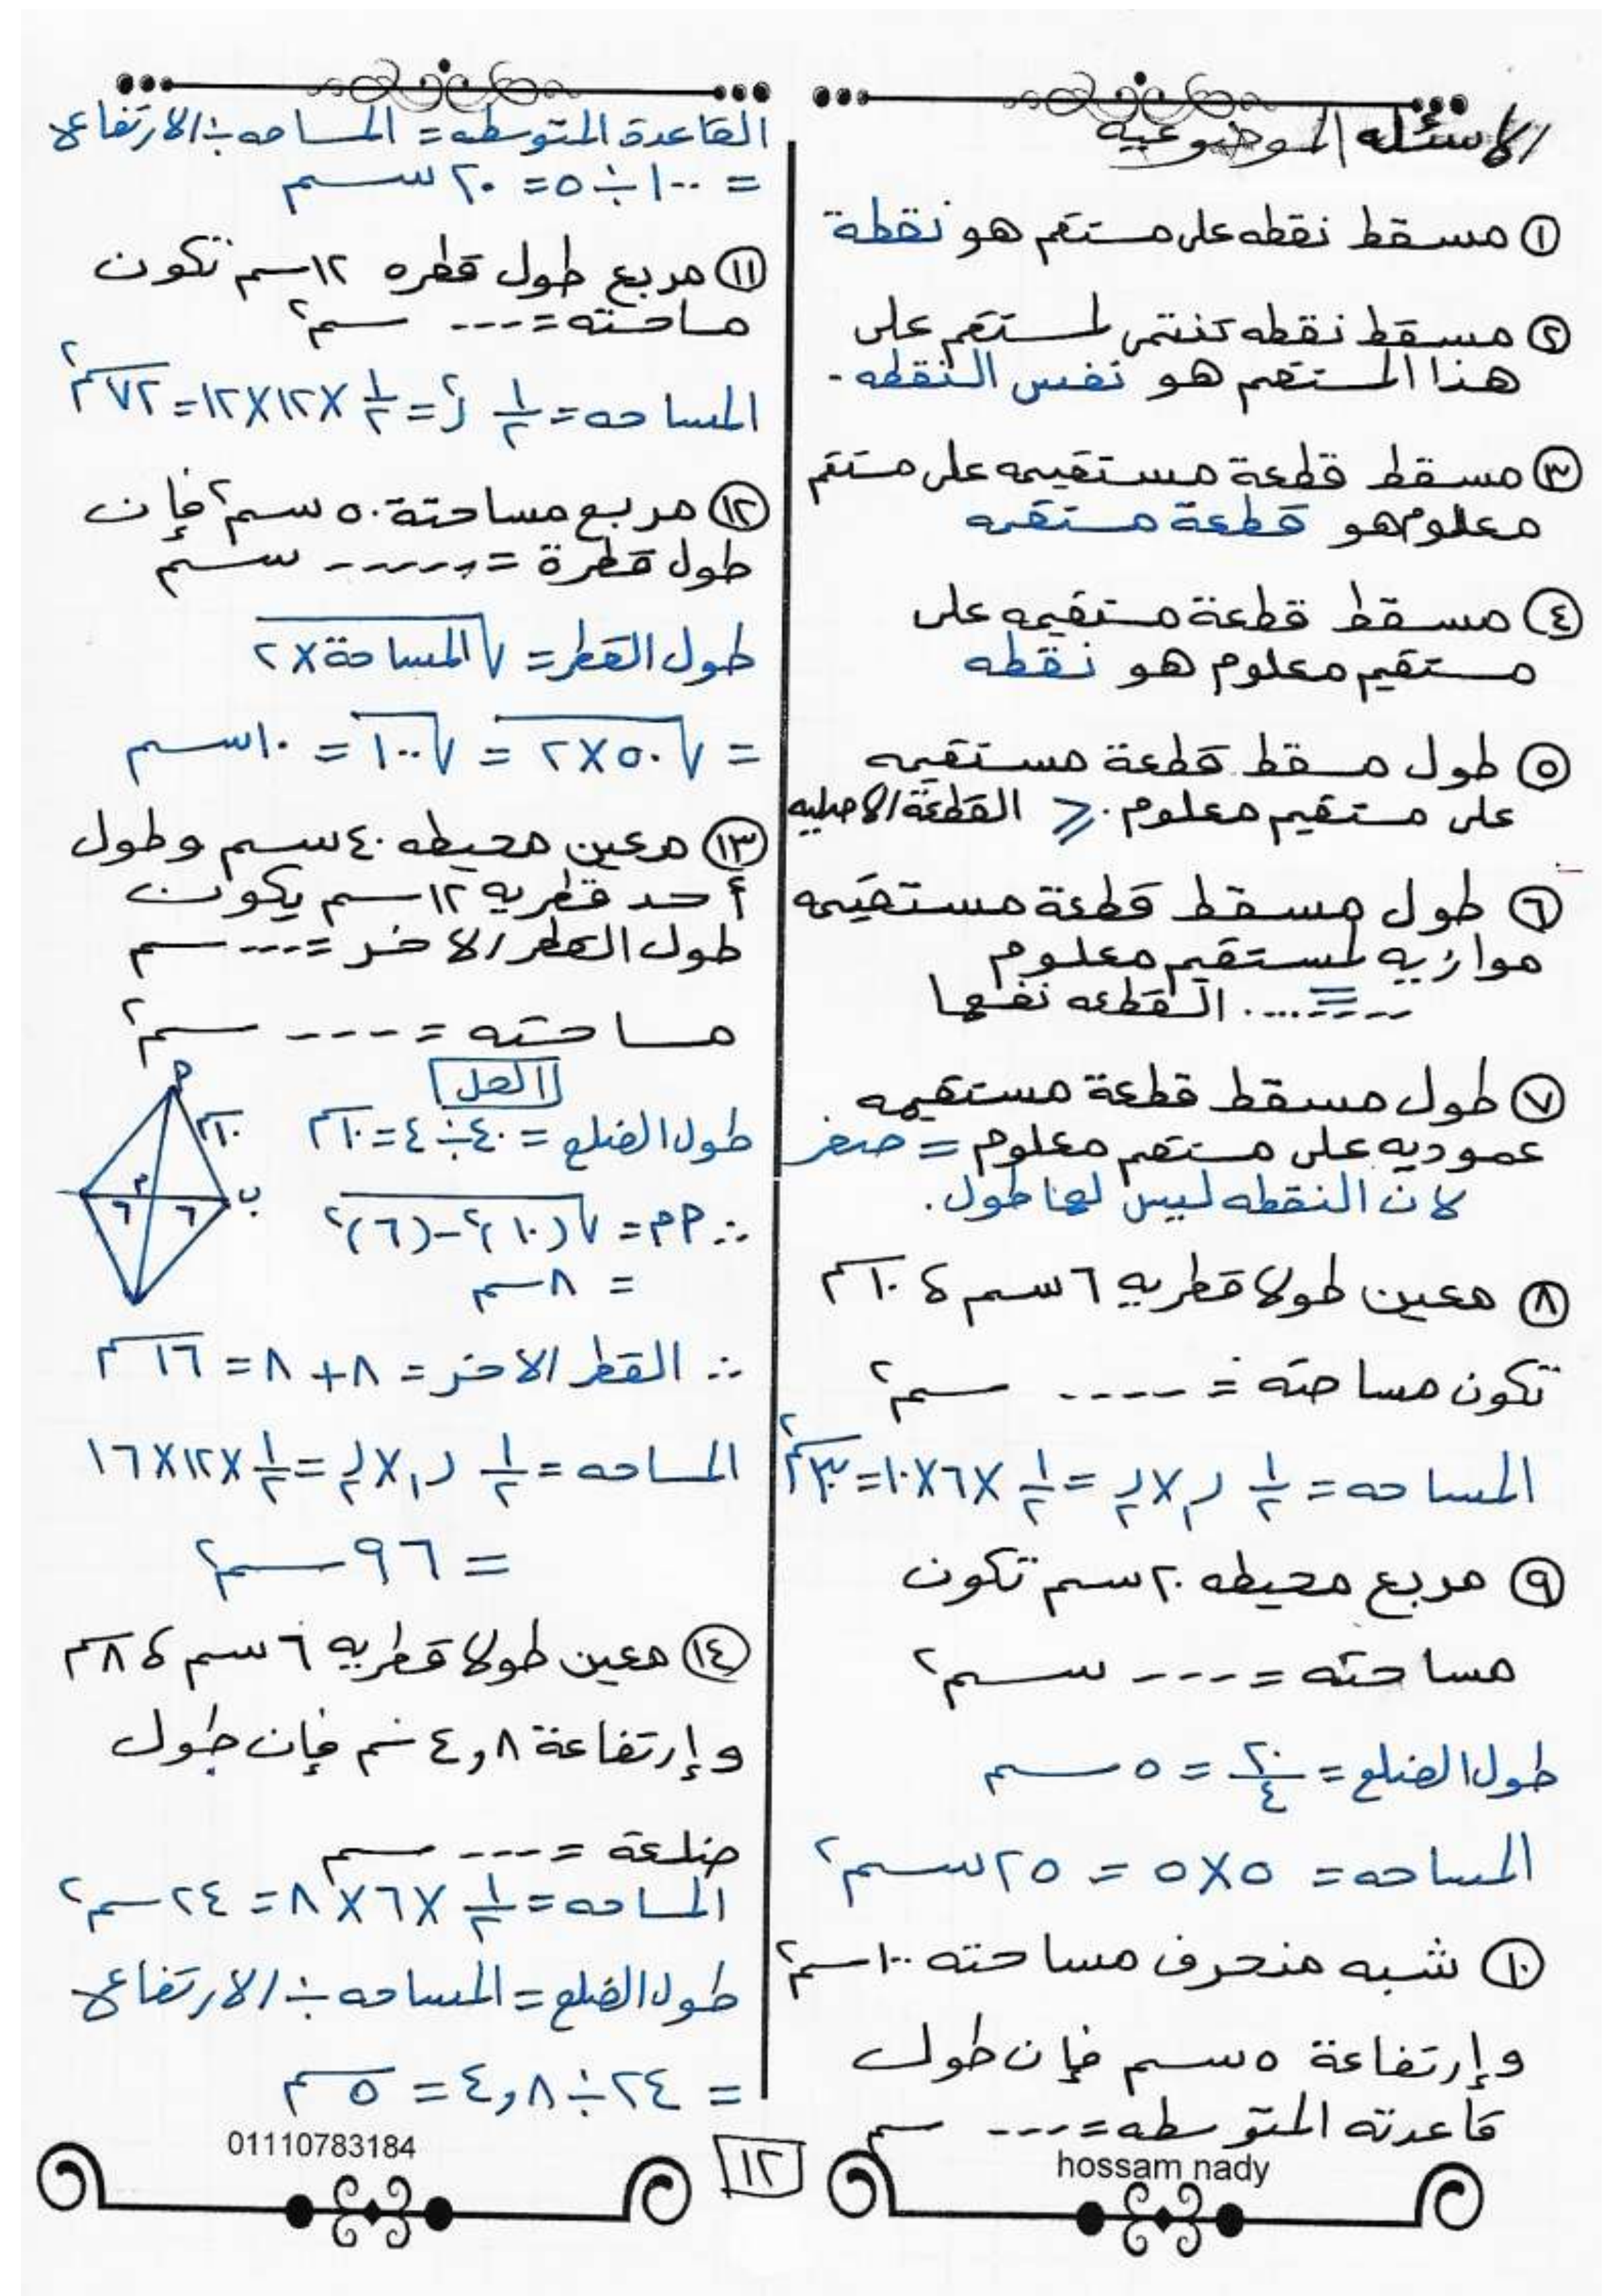 الاسئله الموضوعيه
① مسقط نقطه على مستقم هو نقطة
② مسقط نقطه تنتمى لمستقم على
هذا المستقم هو نفس النقطه .
③ مسقط قطعة مستقيمه على مستقم
معلوم هو قطعة مستقمه
④ مسقط قطعة مستقيمه على
مستقيم معلوم هو نقطه
⑤ طول مسقط قطعة مستقيمه
على مستقيم معلوم . ⩽ القطعة الاصليه
⑥ طول مسقط قطعة مستقيمه
موازيه لمستقيم معلوم
--=.... القطعه نفسها
⑦ طول مسقط قطعة مستقيمه
عموديه على مستقم معلوم = صفر
لان النقطه ليس لها طول .
⑧ معين طولا قطريه ٦ سم ، ١٠ سم
تكون مساحته = ---- سم٢
المساحه = ١/٢ ر١ × ر٢ = ١/٢ × ٦ × ١٠ = ٣٠ سم٢
⑨ مربع محيطه ٢٠ سم تكون
مساحته = --- سم٢
طول الضلع = ٢٠/٤ = ٥ سم
المساحه = ٥ × ٥ = ٢٥ سم٢
⑩ شبه منحرف مساحته ١٠٠ سم٢
وإرتفاعة ٥ سم فإن طول
قاعدته المتوسطه = --- سم
القاعدة المتوسطه = المساحه ÷ الارتفاع
= ١٠٠ ÷ ٥ = ٢٠ سم
⑪ مربع طول قطره ١٢ سم تكون
مساحته = --- سم٢
المساحه = ١/٢ ر٢ = ١/٢ × ١٢ × ١٢ = ٧٢ سم٢
⑫ مربع مساحتة ٥٠ سم٢ فإن
طول قطرة = ------ سم
طول القطر = √المساحة × ٢
= √٥٠ × ٢ = √١٠٠ = ١٠ سم
⑬ معين محيطه ٤٠ سم وطول
أحد قطريه ١٢ سم يكون
طول القطر الاخر = ---- سم
مساحته = ---- سم٢
الحل
طول الضلع = ٤٠ ÷ ٤ = ١٠ سم
∴ م٢ = √(١٠)٢ - (٦)٢
= ٨ سم
م
١٠ سم
ب
م
٦
٦
∴ القطر الاخر = ٨ + ٨ = ١٦ سم
المساحه = ١/٢ ر١ × ر٢ = ١/٢ × ١٢ × ١٦
= ٩٦ سم٢
⑭ معين طولا قطريه ٦ سم ، ٨ سم
وإرتفاعة ٤,٨ سم فإن طول
ضلعة = --- سم
المساحه = ١/٢ × ٦ × ٨ = ٢٤ سم٢
طول الضلع = المساحه ÷ الارتفاع
= ٢٤ ÷ ٤,٨ = ٥ سم
01110783184
١٢
hossam nady